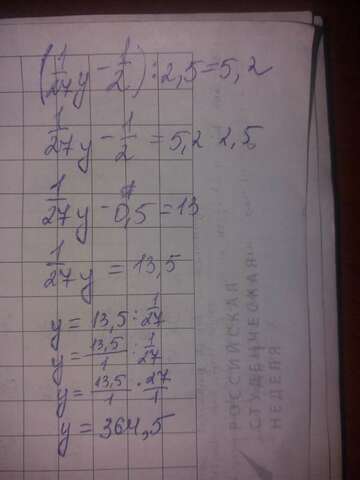 (1/27 y − 1/2) : 2,5 = 5,2
1/27 y − 1/2 = 5,2 · 2,5
1/27 y − 0,5 = 13
1/27 y = 13,5
y = 13,5 : 1/27
y = 13,5/1 : 1/27
y = 13,5/1 · 27/1
y = 364,5
РОССИЙСКАЯ
СТУДЕНЧЕСКАЯ
НЕДЕЛЯ